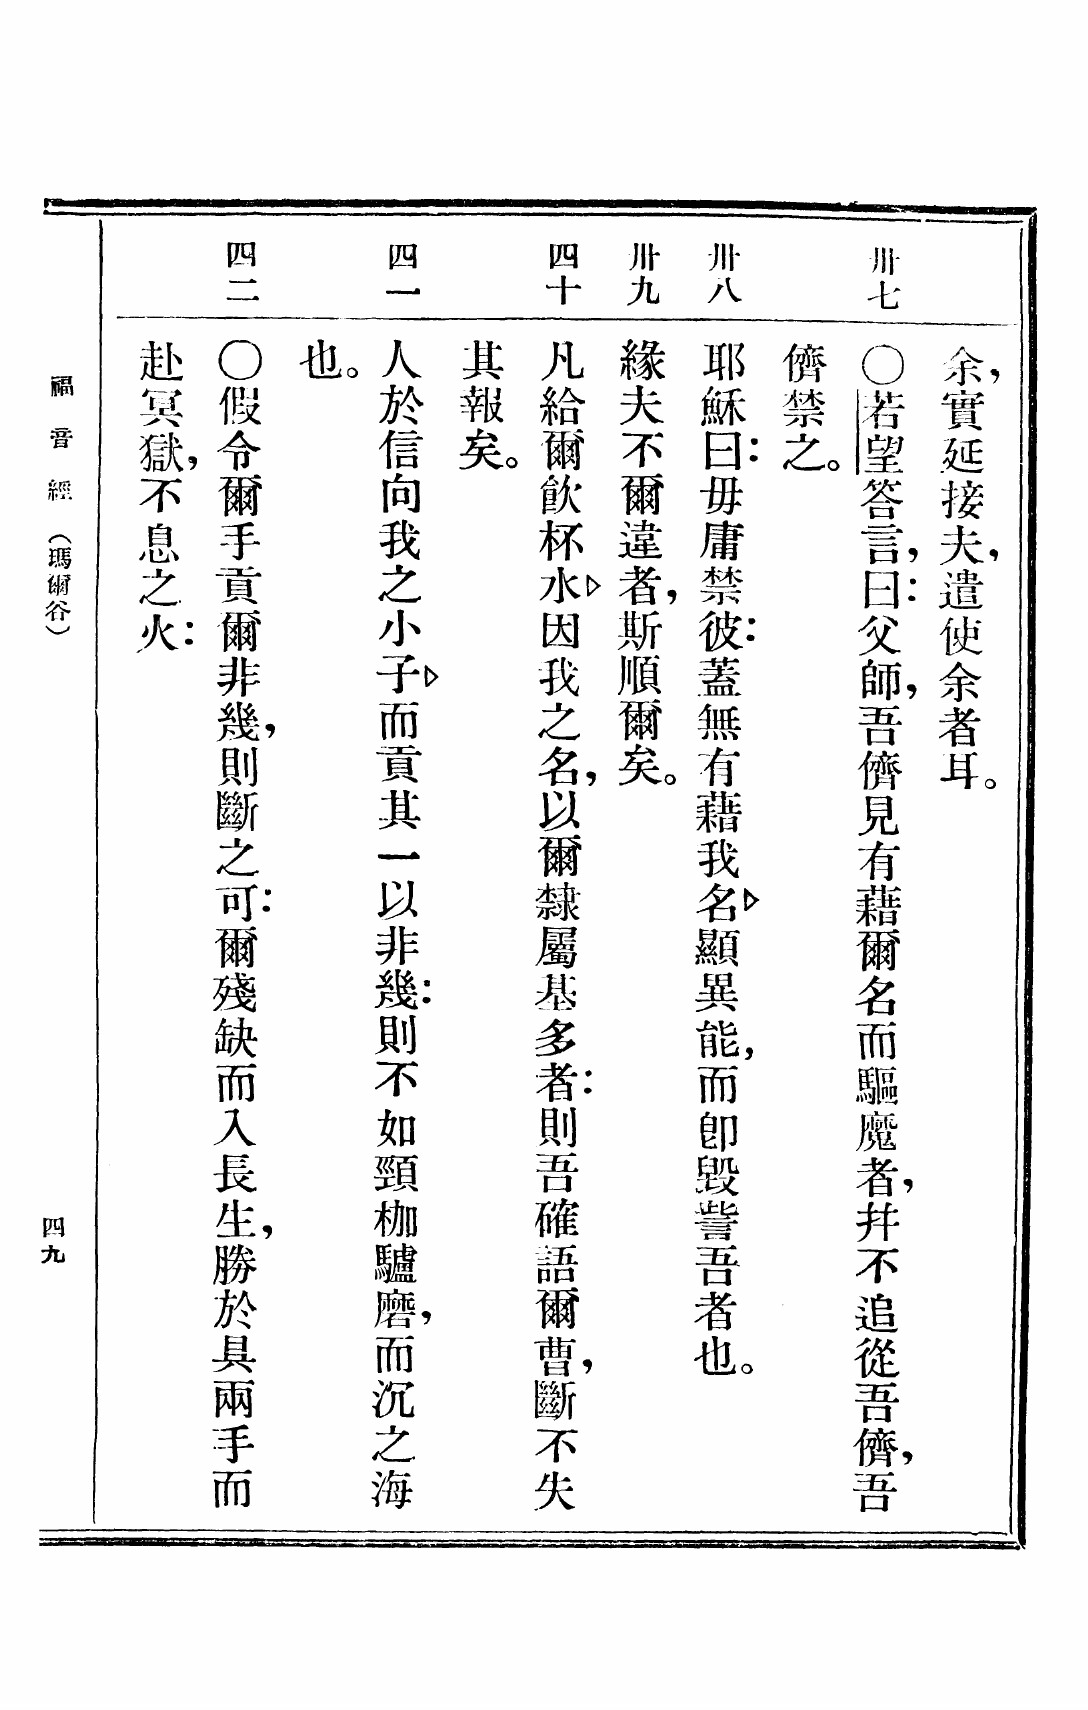 余，實延接夫，遣使余者耳。
卅七
○若望答言，曰：父師，吾儕見有藉爾名而驅魔者，幷不追從吾儕，吾
儕禁之。
卅八
耶穌曰：毋庸禁彼：蓋無有藉我名▷顯異能，而卽毀訾吾者也。
卅九
緣夫不爾違者，斯順爾矣。
四十
凡給爾飮杯水▷因我之名，以爾隸屬基多者：則吾確語爾曹，斷不失
其報矣。
四一
人於信向我之小子▷而貢其一以非幾：則不如頸枷驢磨，而沉之海
也。
四二
○假令爾手貢爾非幾，則斷之可：爾殘缺而入長生，勝於具兩手而
赴冥獄，不息之火：
福音經（瑪爾谷）
四九